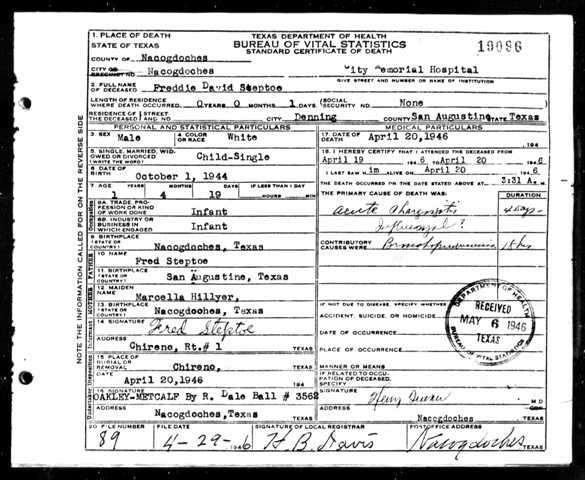 1. PLACE OF DEATH
STATE OF TEXAS
TEXAS DEPARTMENT OF HEALTH
BUREAU OF VITAL STATISTICS
STANDARD CERTIFICATE OF DEATH
19096
COUNTY OF Nacogdoches
CITY OR PRECINCT NO. Nacogdoches
City Memorial Hospital
GIVE STREET AND NUMBER OR NAME OF INSTITUTION
2. FULL NAME OF DECEASED Freddie David Steptoe
LENGTH OF RESIDENCE WHERE DEATH OCCURRED 0 YEARS 0 MONTHS 1 DAYS SOCIAL SECURITY NO. None
RESIDENCE OF THE DECEASED STREET AND NO. Denning COUNTY San Augustine STATE Texas
PERSONAL AND STATISTICAL PARTICULARS
3. SEX Male
4. COLOR OR RACE White
5. SINGLE, MARRIED, WIDOWED OR DIVORCED (WRITE THE WORD) Child-Single
6. DATE OF BIRTH October 1, 1944
7. AGE YEARS MONTHS DAYS IF LESS THAN 1 DAY
1 4 19 HOURS MIN
8A. TRADE, PROFESSION OR KIND OF WORK DONE Infant
8B. INDUSTRY OR BUSINESS IN WHICH ENGAGED Infant
9. BIRTHPLACE (STATE OR COUNTRY) Nacogdoches, Texas
10 NAME Fred Steptoe
11. BIRTHPLACE (STATE OR COUNTRY) San Augustine, Texas
12 MAIDEN NAME Marcella Hillyer,
13. BIRTHPLACE (STATE OR COUNTRY) Nacogdoches, Texas
14 SIGNATURE Fred Steptoe
ADDRESS Chireno, Rt.# 1 TEXAS
15 PLACE OF BURIAL OR REMOVAL Chireno, TEXAS
DATE April 20,1946 194
16 SIGNATURE OAKLEY-METCALF By R. Dale Ball # 3562
ADDRESS Nacogdoches,Texas TEXAS
MEDICAL PARTICULARS
17. DATE OF DEATH April 20,1946 194
18. I HEREBY CERTIFY THAT I ATTENDED THE DECEASED FROM
April 19 1946 TO April 20 1946
I LAST SAW him ALIVE ON April 20 1946
THE DEATH OCCURRED ON THE DATE STATED ABOVE AT 3:31 A. M.
THE PRIMARY CAUSE OF DEATH WAS: DURATION
acute Pharyngitis 4 days
Influenzal?
CONTRIBUTORY CAUSES WERE: Bronchopneumonia
IF NOT DUE TO DISEASE, SPECIFY WHETHER
ACCIDENT, SUICIDE, OR HOMICIDE
DATE OF OCCURRENCE
PLACE OF OCCURRENCE
MANNER OR MEANS
IF RELATED TO OCCUPATION OF DECEASED, SPECIFY
SIGNATURE M D
ADDRESS Nacogdoches TEXAS
DEPARTMENT OF HEALTH
RECEIVED
MAY 6 1946
TEXAS
BUREAU OF VITAL STATISTICS
20 FILE NO. 89
FILE DATE 4-29- 1946
SIGNATURE OF LOCAL REGISTRAR H. B. Davis
POSTOFFICE ADDRESS Nacogdoches TEXAS
NOTE THE INFORMATION CALLED FOR ON THE REVERSE SIDE
Occupation
FATHER
MOTHER
Informant